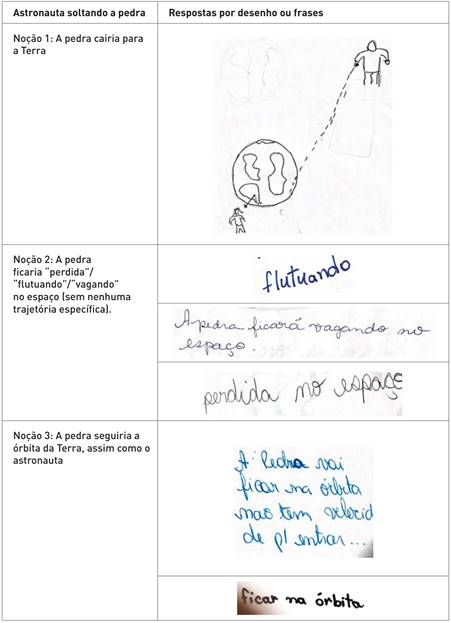 Astronauta soltando a pedra
Respostas por desenho ou frases
Noção 1: A pedra cairia para
a Terra
Noção 2: A pedra
ficaria "perdida"/
"flutuando"/"vagando"
no espaço (sem nenhuma
trajetória específica).
flutuando
A pedra ficará vagando no
espaço.
perdida no espaço
Noção 3: A pedra seguiria a
órbita da Terra, assim como o
astronauta
A Pedra vai
ficar na órbita
mao tem velocid
de p/ entrar...
ficar na órbita